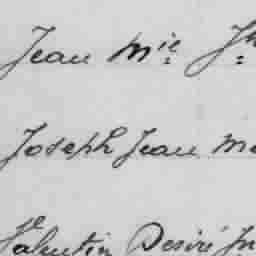 Jean Mie Jh
Joseph Jean M
Valentin Désiré